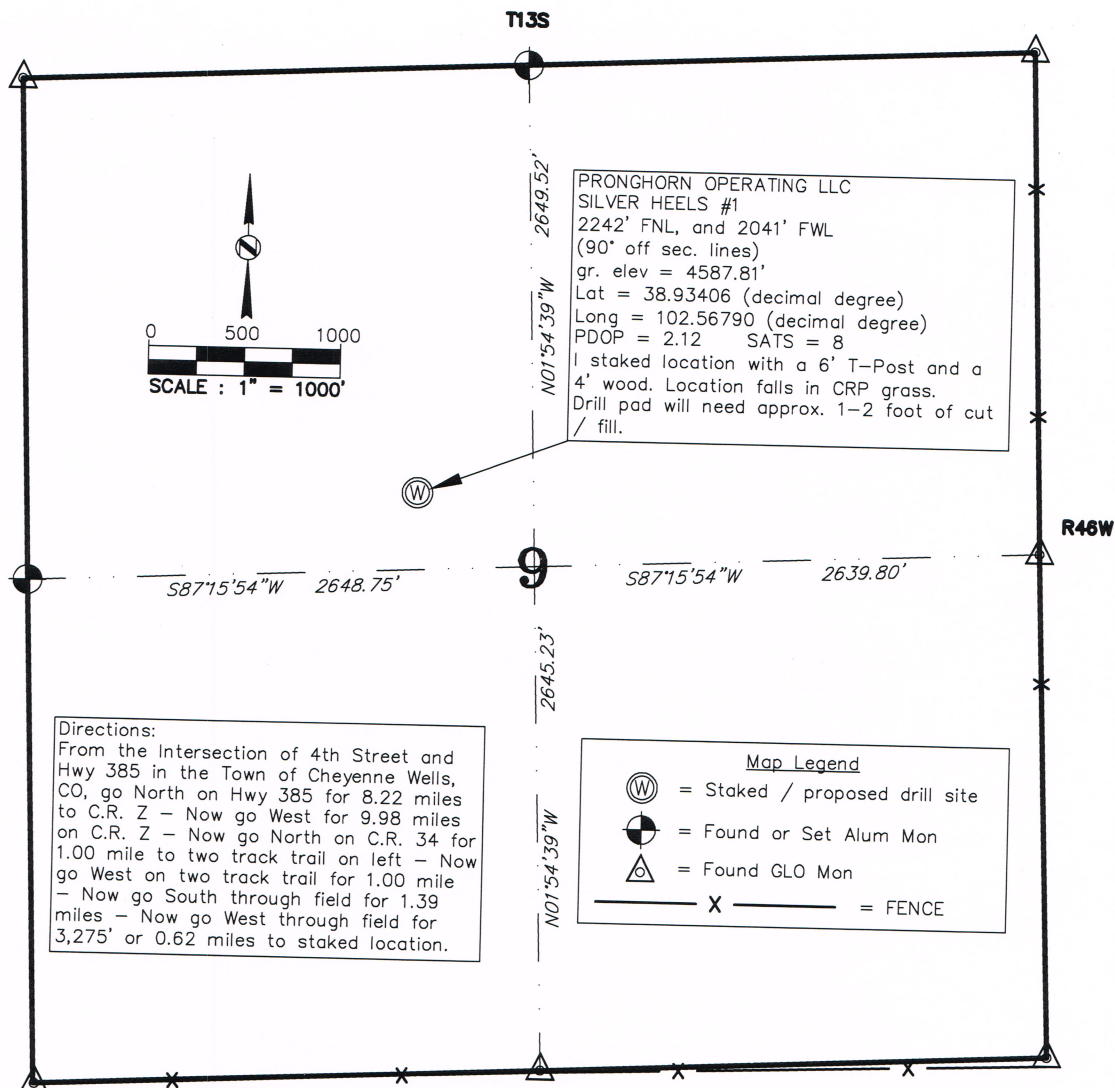 T13S
2649.52'
N01°54'39"W
PRONGHORN OPERATING LLC
SILVER HEELS #1
2242' FNL, and 2041' FWL
(90° off sec. lines)
gr. elev = 4587.81'
Lat = 38.93406 (decimal degree)
Long = 102.56790 (decimal degree)
PDOP = 2.12 SATS = 8
I staked location with a 6' T-Post and a
4' wood. Location falls in CRP grass.
Drill pad will need approx. 1-2 foot of cut
/ fill.
N
0 500 1000
SCALE : 1" = 1000'
W
R46W
9
S87°15'54"W 2648.75'
S87°15'54"W 2639.80'
2645.23'
N01°54'39"W
Directions:
From the Intersection of 4th Street and
Hwy 385 in the Town of Cheyenne Wells,
CO, go North on Hwy 385 for 8.22 miles
to C.R. Z - Now go West for 9.98 miles
on C.R. Z - Now go North on C.R. 34 for
1.00 mile to two track trail on left - Now
go West on two track trail for 1.00 mile
- Now go South through field for 1.39
miles - Now go West through field for
3,275' or 0.62 miles to staked location.
Map Legend
W = Staked / proposed drill site
= Found or Set Alum Mon
= Found GLO Mon
X = FENCE